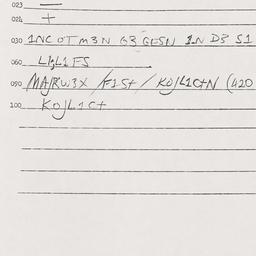 023 —
024 +
030 1NC OT M3N G3GESN 1N D3 S1
060 L1;L1FS
090 MAJRW3X /F1St/ KOJL1CtN (420
100 KOJL1Ct